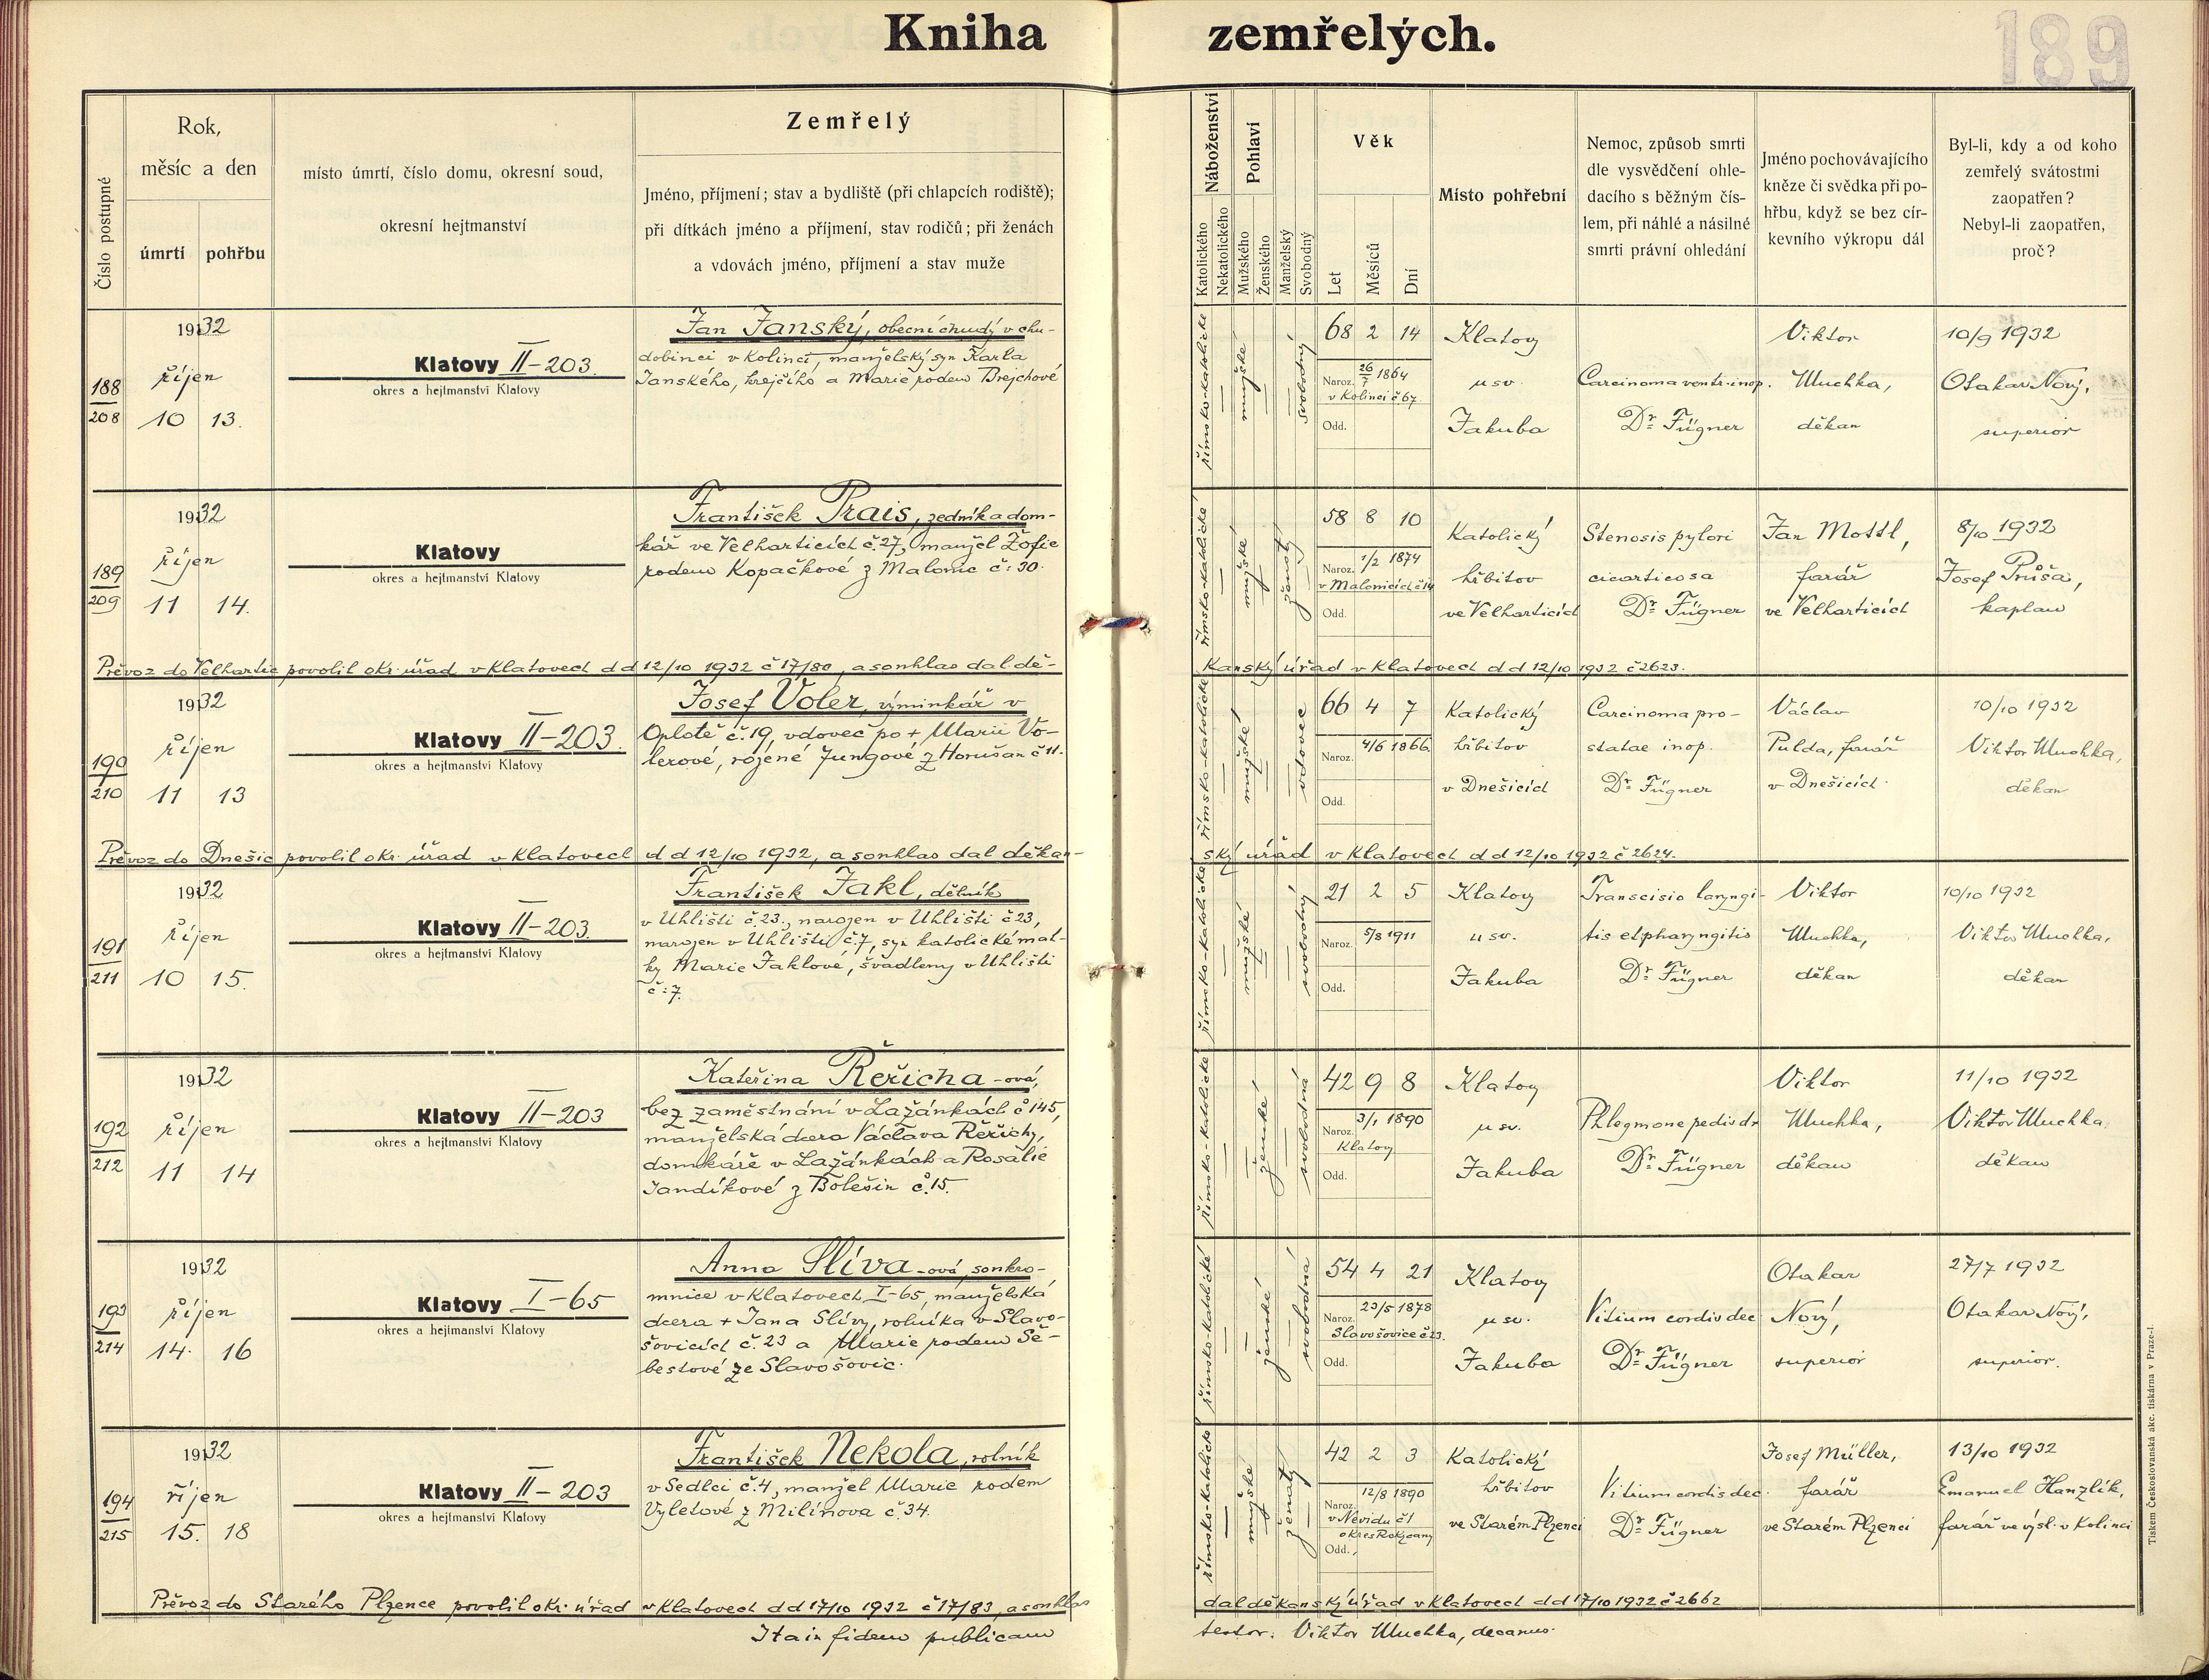 Kniha zemřelých.
189
Číslo postupné
Rok,
měsíc a den
úmrtí
pohřbu
místo úmrtí, číslo domu, okresní soud,
okresní hejtmanství
Zemřelý
Jméno, příjmení; stav a bydliště (při chlapcích rodiště);
při dítkách jméno a příjmení, stav rodičů; při ženách
a vdovách jméno, příjmení a stav muže
Náboženství
Katolického
Nekatolického
Pohlaví
Mužského
Ženského
Manželský
Svobodný
Věk
Let
Měsíců
Dní
Místo pohřební
Nemoc, způsob smrti
dle vysvědčení ohle-
dacího s běžným čís-
lem, při náhlé a násilné
smrti právní ohledání
Jméno pochovávajícího
kněze či svědka při po-
hřbu, když se bez cír-
kevního výkropu dál
Byl-li, kdy a od koho
zemřelý svátostmi
zaopatřen?
Nebyl-li zaopatřen,
proč?
188
208
1932
říjen
10 13.
Klatovy II-203.
okres a hejtmanství Klatovy
Jan Janský, obecní chudý v chu-
dobinci v Kolinci, manželský syn Karla
Janského, krejčího a Marie rodem Brejchové
římsko-katolické
mužské
svobodný
68 2 14
Naroz. 26/7 1864
v Kolinci č 67.
Odd.
Klatovy
u sv.
Jakuba
Carcinoma ventr. inop.
Dr. Fügner
Viktor
Muchka,
děkan
10/9 1932
Otakar Nový,
superior
189
209
1932
říjen
11 14.
Klatovy
okres a hejtmanství Klatovy
František Prais, zedník a dom-
kář ve Velharticích č.27, manžel Žofie
rodem Kopačkové z Malonic č: 30.
římsko-katolické
mužské
ženatý
58 8 10
Naroz. 1/2 1874
v Malonicích č 14
Odd.
Katolický
hřbitov
ve Velharticích
Stenosis pylori
cicarticosa
Dr. Fügner
Jan Mottl,
farář
ve Velharticích
8/10 1932
Josef Průša,
kaplan
Převoz do Velhartic povolil okr. úřad v Klatovech d d 12/10 1932 č 17/80, a souhlas dal dě-
kanský úřad v Klatovech d d 12/10 1932 č 2623.
190
210
1932
říjen
11 13
Klatovy II-203.
okres a hejtmanství Klatovy
Josef Voler, výminkář v
Oplotě č.19, vdovec po + Marii Vo-
lerové, rozené Jungové z Horušan č 11.
římsko-katolické
mužské
vdovec
66 4 7
Naroz. 4/6 1866
Odd.
Katolický
hřbitov
v Dnešicích
Carcinoma pro-
statae inop.
Dr. Fügner
Václav
Pulda, farář
v Dnešicích.
10/10 1932
Viktor Muchka,
děkan
Převoz do Dnešic povolil okr. úřad v Klatovech d d 12/10 1932, a souhlas dal děkan-
ský úřad v Klatovech d d 12/10 1932 č 2624.
191
211
1932
říjen
10 15.
Klatovy II-203.
okres a hejtmanství Klatovy
František Jakl, dělník
v Uhlišti č.23., narozen v Uhlišti č 23,
narozen v Uhlišti č.7, syn katolické mat-
ky Marie Jaklové, švadleny v Uhlišti
č:7.
římsko-katolické
mužské
svobodný
21 2 5
Naroz. 5/8 1911
Odd.
Klatovy
u sv.
Jakuba
Transcisio laryngi-
tis et pharyngitis
Dr. Fügner
Viktor
Muchka,
děkan
10/10 1932
Viktor Muchka,
děkan
192
212
1932
říjen
11 14
Klatovy II-203
okres a hejtmanství Klatovy
Kateřina Řeřicha-ová,
bez zaměstnání v Lažánkách č 145,
manželská dcera Václava Řeřichy,
domkáře v Lažánkách a Rosalie
Jandíkové z Bolešin č.15.
římsko-katolické
ženské
svobodná
42 9 8
Naroz. 3/1 1890
Klatovy
Odd.
Klatovy
u sv.
Jakuba
Phlegmone pedis dr
Dr. Fügner
Viktor
Muchka,
děkan
11/10 1932
Viktor Muchka
děkan
193
214
1932
říjen
14. 16
Klatovy I-65
okres a hejtmanství Klatovy
Anna Slíva-ová, soukro-
mnice v Klatovech I-65, manželská
dcera + Jana Slívy, rolníka v Slavo-
šovicích č.23 a Marie rodem Še-
bestové ze Slavošovic.
římsko-katolické
ženské
svobodná
54 4 21
Naroz. 23/5 1878
Slavošovice č 23.
Odd.
Klatovy
u sv.
Jakuba
Vitium cordis dec
Dr. Fügner
Otakar
Nový,
superior
27/7 1932
Otakar Nový,
superior.
194
215
1932
říjen
15. 18
Klatovy II-203
okres a hejtmanství Klatovy
František Nekola, rolník
v Sedlci č.4, manžel Marie rodem
Vyletové z Milínova č.34.
římsko-katolické
mužské
ženatý
42 2 3
Naroz. 12/8 1890
v Nevidu č 1
okres Rokycany
Odd.
Katolický
hřbitov
ve Starém Plzenci
Vitium cordis dec.
Dr. Fügner
Josef Müller,
farář
ve Starém Plzenci
13/10 1932
Emanuel Hanzlík,
farář ve výsl. v Kolinci
Převoz do Starého Plzence povolil okr. úřad v Klatovech d d 17/10 1932 č 17/83, a souhlas
dal děkanský úřad v Klatovech d d 17/10 1932 č 2662
Ita in fidem publicam
testor: Viktor Muchka, decanus.
Tiskem Československá akc. tiskárna v Praze-I.